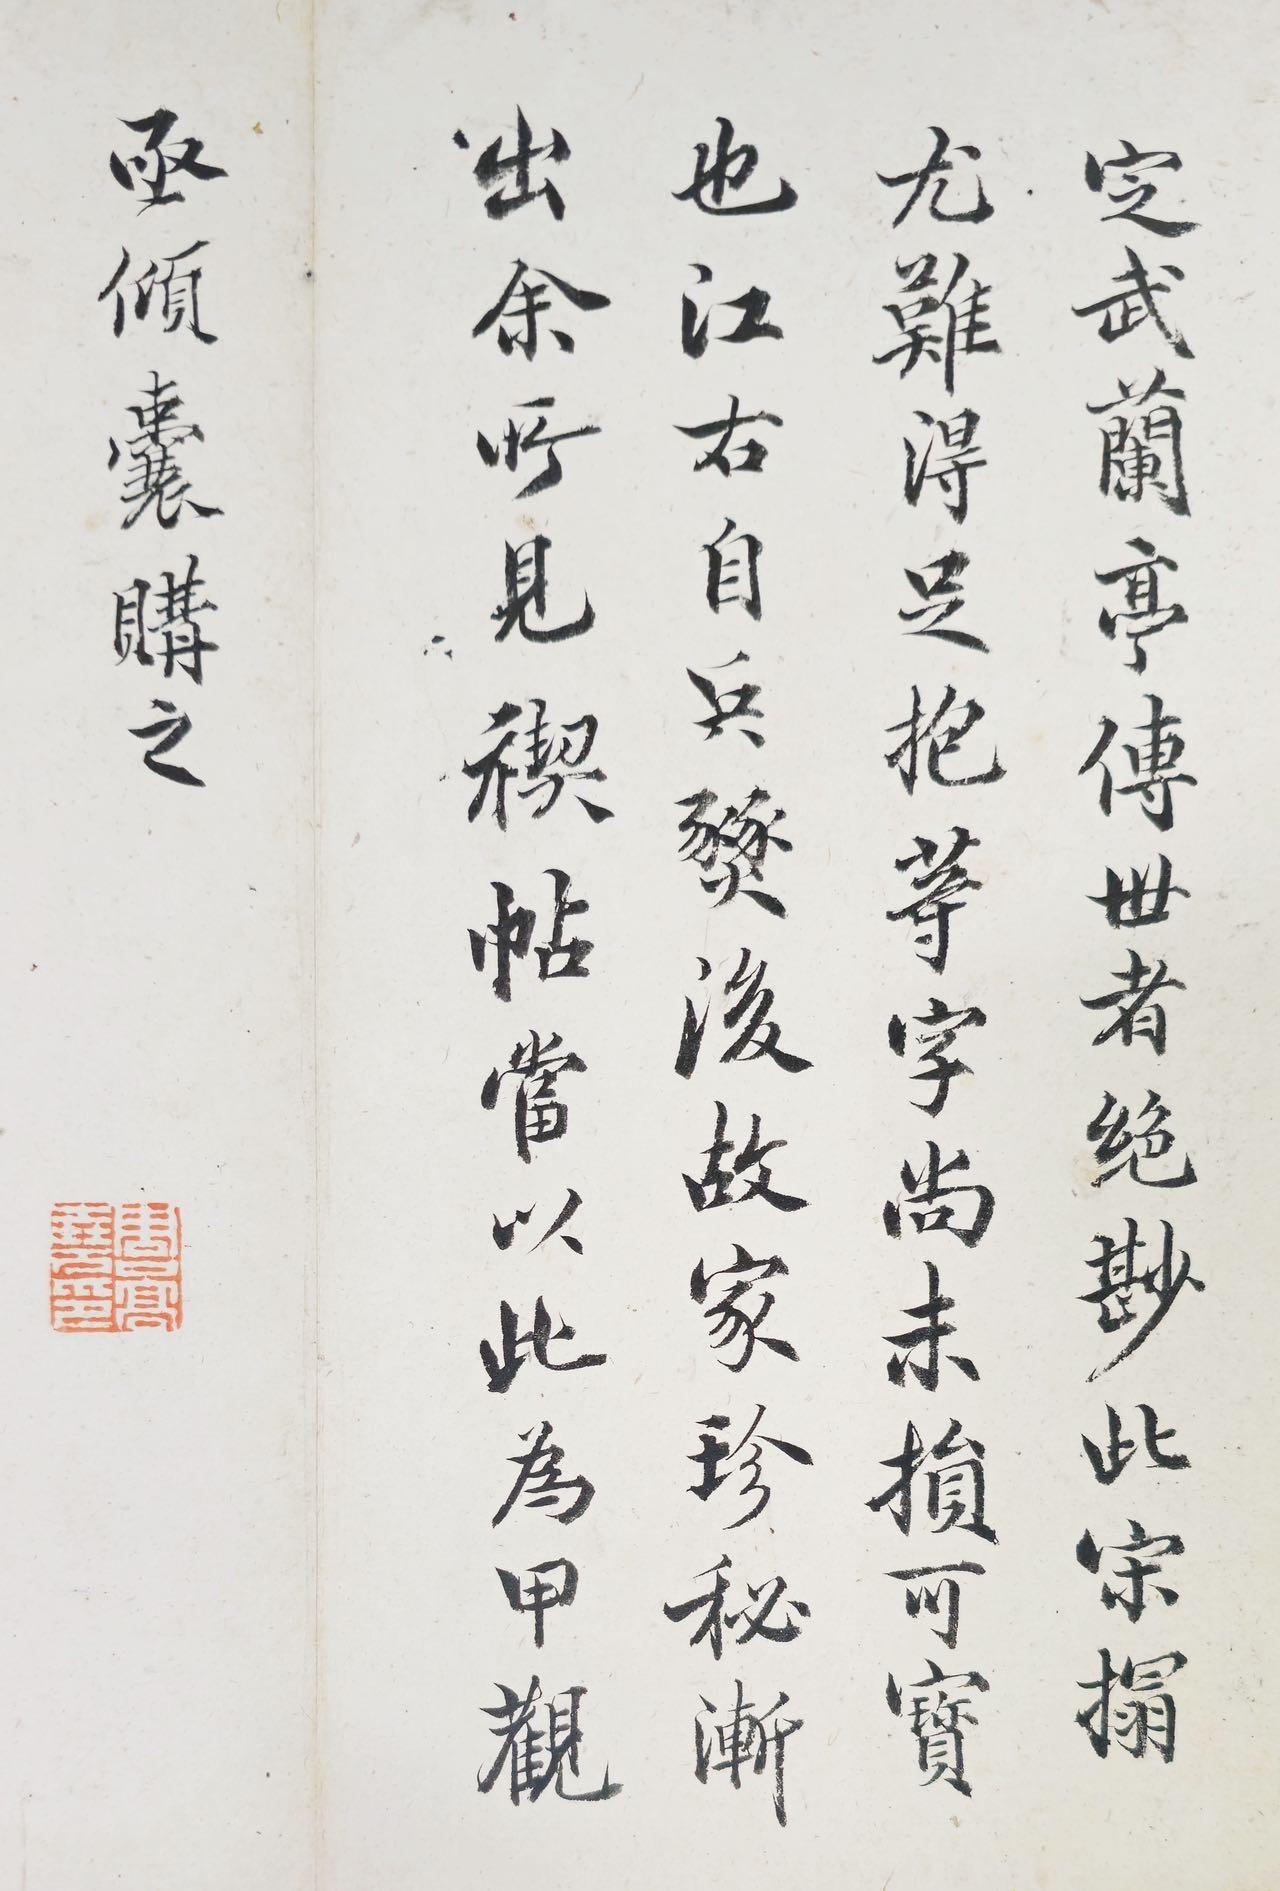 定武蘭亭傳世者絶尠此宋搨
尤難得足抱等字尚未損可寶
也江右自兵燹後故家珍秘漸
出余所見禊帖當以此為甲觀
亟傾囊購之